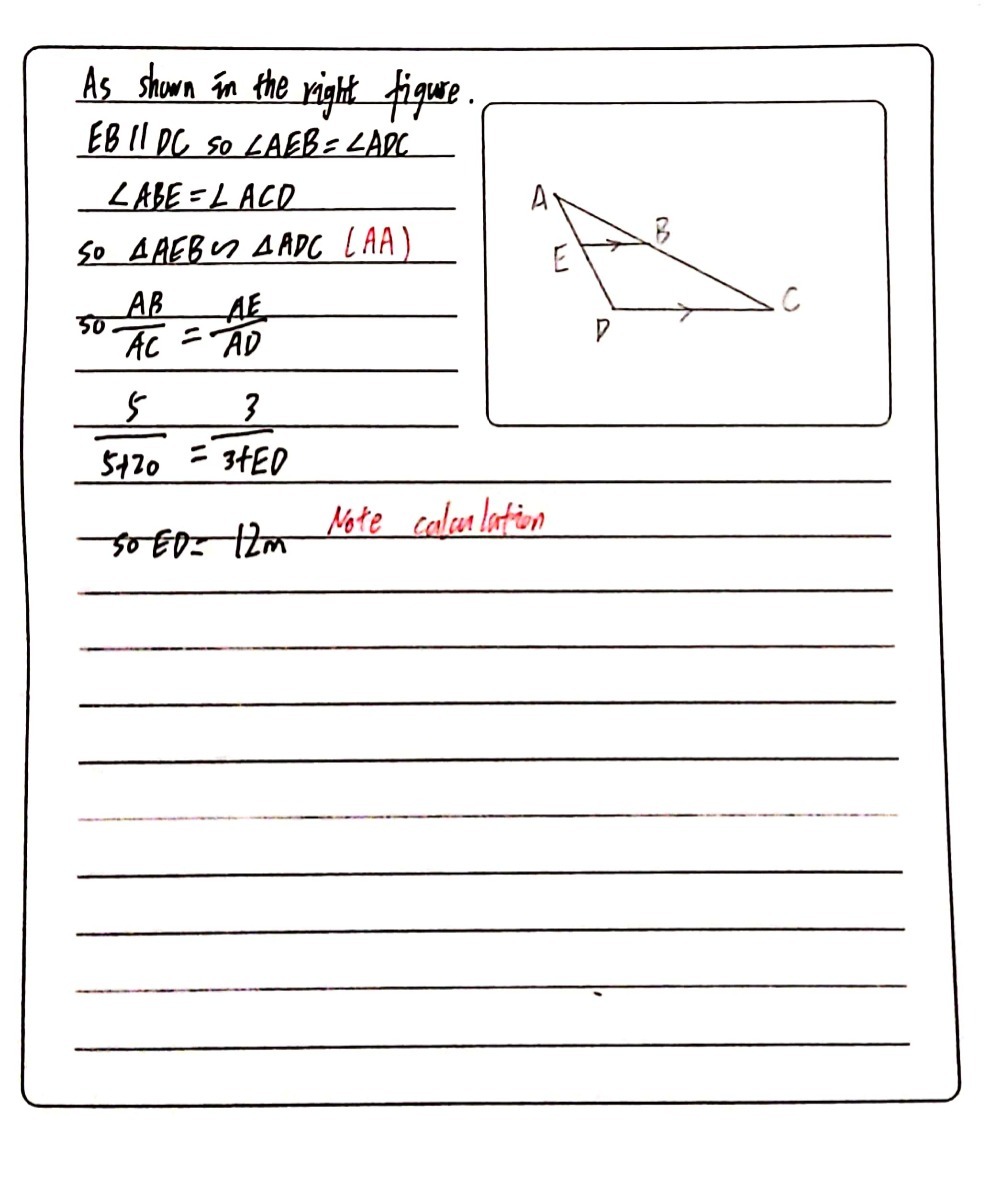 As shown in the right figure.
EB // DC so ∠AEB = ∠ADC
∠ABE = ∠ACD
so △AEB ∽ △ADC (AA)
so AB/AC = AE/AD
5/5+20 = 3/3+ED
so ED = 12m Note calculation
A
B
E
C
D